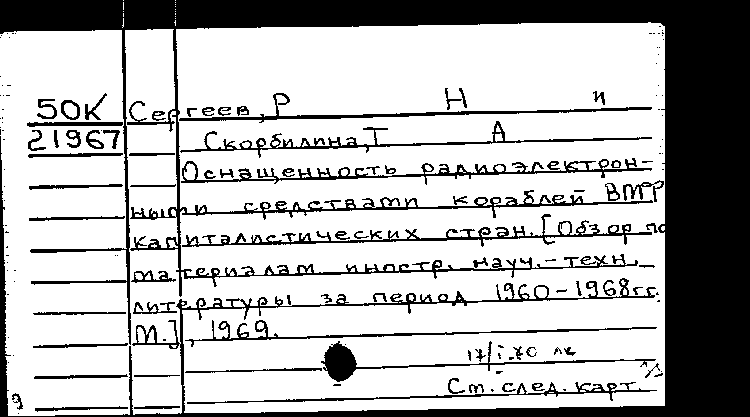 50К Сергеев, Р Н и
21967 Скорбилина, Т А
Оснащенность радиоэлектрон-
ными средствами кораблей ВМФ
капиталистических стран. [Обзор по
материалам иностр. науч.-техн.
литературы за период 1960-1968гг.
М.], 1969.
17/I.70
См. след. карт.
9